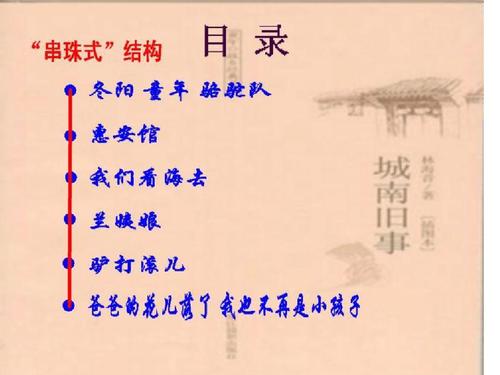 目 录
“串珠式”结构
冬阳 童年 骆驼队
惠安馆
我们看海去
兰姨娘
驴打滚儿
爸爸的花儿落了 我也不再是小孩子
城南旧事
林海音/著
[插图本]